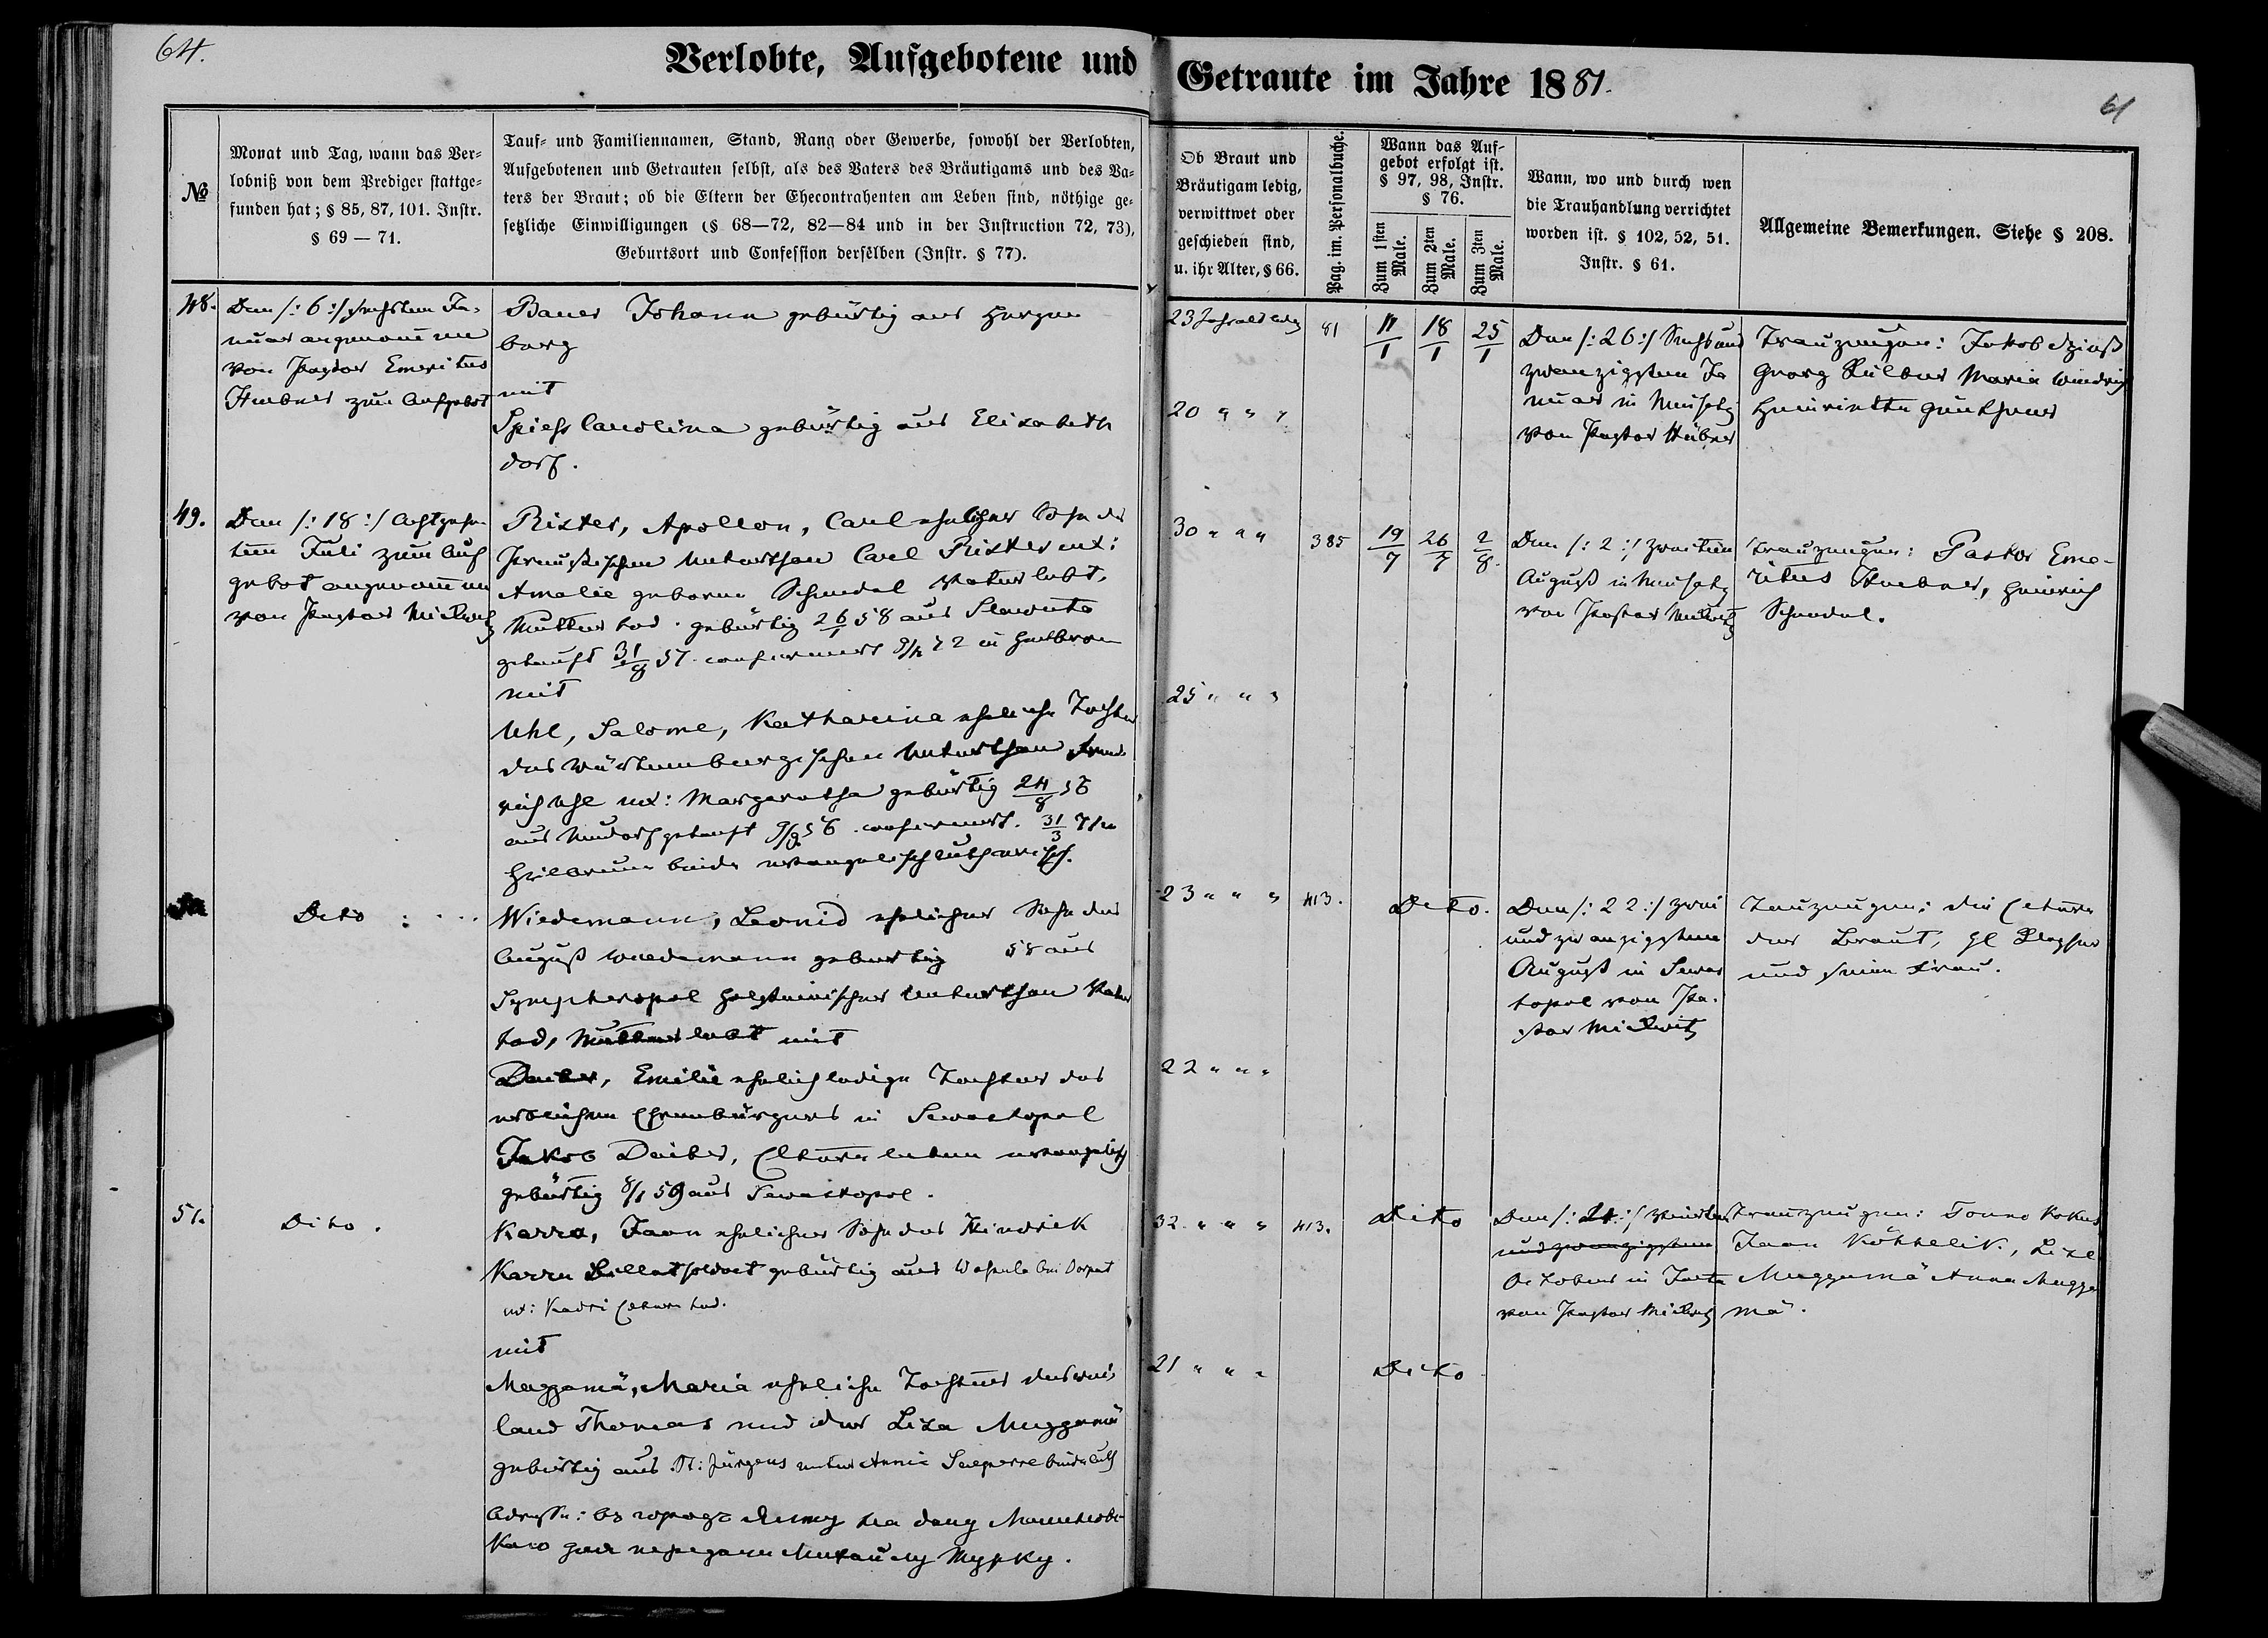 64.
Verlobte, Aufgebotene und Getraute im Jahre 1881.
61
№
Monat und Tag, wann das Ver=
lobniß von dem Prediger stattge=
funden hat; § 85, 87, 101. Instr.
§ 69 — 71.
Tauf= und Familiennamen, Stand, Rang oder Gewerbe, sowohl der Verlobten,
Aufgebotenen und Getrauten selbst, als des Vaters des Bräutigams und des Va=
ters der Braut; ob die Eltern der Ehecontrahenten am Leben sind, nöthige ge=
setzliche Einwilligungen (§ 68—72, 82—84 und in der Instruction 72, 73),
Geburtsort und Confession derselben (Instr. § 77).
Ob Braut und
Bräutigam ledig,
verwittwet oder
geschieden sind,
u. ihr Alter, § 66.
Pag. im. Personalbuche.
Wann das Auf=
gebot erfolgt ist.
§ 97, 98, Instr.
§ 76.
Zum 1sten
Male.
Zum 2ten
Male.
Zum 3ten
Male.
Wann, wo und durch wen
die Trauhandlung verrichtet
worden ist. § 102, 52, 51.
Instr. § 61.
Allgemeine Bemerkungen. Siehe § 208.
48.
Den /: 6 :/ sechsten Ja-
nuar angenommen
von Pastor Emeritus
Huebner zum Aufgebot
Bauer Johann gebürtig aus
berg
mit
Spiess Carolina gebürtig aus Elisabeth
dorf.
23 Jahr alt ledig
20 " " "
81
11/1 18/1 25/1
Den /: 26 :/ Sechs und
zwanzigsten Ja
nuar in Neusatz
von Pastor Hübner
Trauzeugen: Jakob
Georg Maria
Heinriette
49.
Den /: 18 :/ Achtzehn
ten Juli zum Auf
gebot angenommen
von Pastor Mickwitz
Rister, Apollon, Carl ehelicher Sohn des
Preußischen Unterthan Carl Rister ux:
Amalie geborne Schendel Vater lebt,
Mutter tod. gebürtig 26/1 58 aus
getauft 31/8 57. confirmirt 72 in Heilbron
mit
Uhl, Salome, Katharina eheliche Tochter
des Würtembergischen Unterthan Fried
rich Uhl ux: Margaretha gebürtig 24/8 56
aus Neudorf getauft 9/9 56. confirmirt. 31/3
Heilbrunn beide evangelisch lutherisch.
30 " " "
25 " " "
385
19/7 26/7 2/8.
Den /: 2 :/ zweiten
August in Neusatz
von Pastor Mickwitz
Trauzeugen: Pastor Eme-
ritus Huebner, Heinrich
Schendel.
Dito : . . .
Wiedemann, Leonid ehelicher Sohn des
August Wiedemann gebürtig 58 aus
Sympheropol holsteinischer Unterthan Vater
tod, Mutter lebt mit
Daiber, Emilie ehelich ledige Tochter des
erblichen Ehrenbürgers in Sewastopol
Jakob Daiber, Eltern leben evangelisch
gebürtig 8/1 59 aus Sewastopol.
23 " " "
22 " " "
413.
Dito.
Den /: 22 :/ zwei
und zwanzigsten
August in Sewas
topol von Pa-
stor Mickwitz
Trauzeugen: die Eltern
der Braut,
und seine Frau.
51.
Dito.
Karro, Jaan ehelicher Sohn des Hindrik
Karro Billetsoldat gebürtig aus bei Dorpat
ux: Kadri Eltern tod.
mit
Maggamä, Maria eheliche Tochter des wei
land Thomas und der Lisa Muggamä
gebürtig aus St: Jürgens unter beide luth
Adresse: въ городѣ на дачу
для передачи Михаилу Турку.
32 " " "
21 " " "
413.
Dito
Dito
Den /: 24 :/ vierten
und zwanzigsten
October in Jalta
von Pastor Mickwitz
Trauzeugen: Tonno Kokus
Jaan Köhhelik., Lisel
Muggamä Anna Mugga
mä.